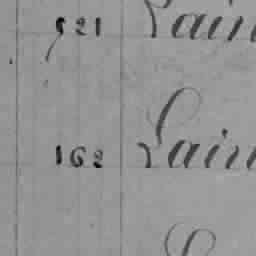 521 Lain
162 Lain